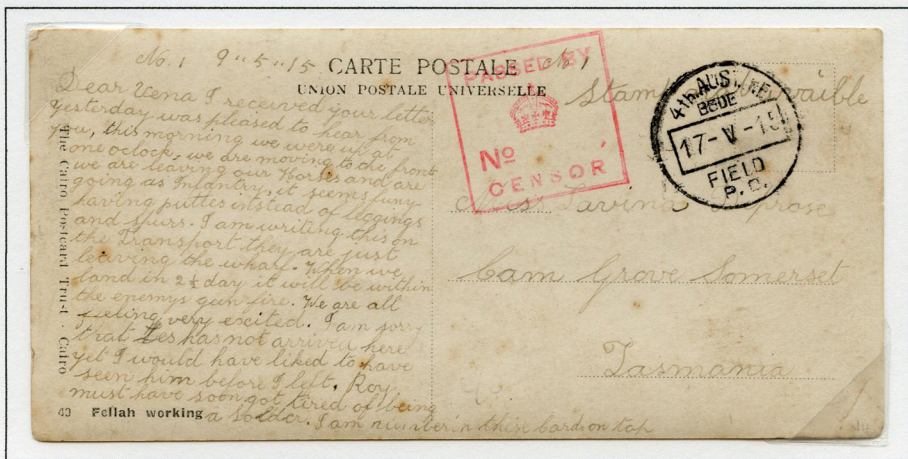 No. 1 9"5"15
CARTE POSTALE
No 1
UNION POSTALE UNIVERSELLE
Dear Vena I received your letter
yesterday was pleased to hear from
you, this morning we were up at
one oclock, we are moving to the front
we are leaving our Horses and are
going as Infantry, it seems funy
having putties instead of leggings
and spurs. I am writing this on
the Transport they are just
leaving the wharf. When we
land in 2½ day it will be within
the enemys gun fire. We are all
feeling very excited. I am sorry
that Les has not arrived here
yet I would have liked to have
seen him before I left. Roy
must have soon got tired of being
a Solder. I am number in these cards on top
The Cairo Postcard Trust · Cairo
43 Fellah working
PASSED BY
No
CENSOR
Stamps
4TH AUST. INF.
BGDE
17-V-15
FIELD
P.O.
Miss Lavina
Cam Grove Somerset
Tasmania